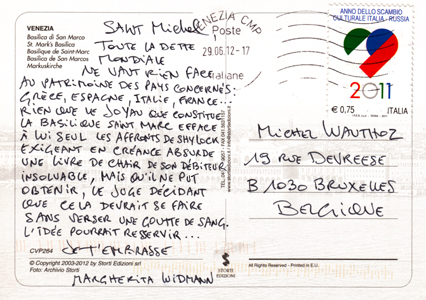 VENEZIA
Basilica di San Marco
St. Mark's Basilica
Basilique de Saint-Marc
Basilica de San Marcos
Markuskirche
SAINT MICHEL,
TOUTE LA DETTE
MONDIALE
NE VAUT RIEN FACE
AU PATRIMOINE DES PAYS CONCERNÉS:
GRÈCE, ESPAGNE, ITALIE, FRANCE...
RIEN QUE LE JOYAU QUE CONSTITUE
LA BASILIQUE SAINT MARC EFFACE
À LUI SEUL LES AFFRONTS DE SHYLOCK
EXIGEANT EN CRÉANCE ABSURDE
UNE LIVRE DE CHAIR DE SON DÉBITEUR
INSOLVABLE, MAIS QU'IL NE PUT
OBTENIR, LE JUGE DÉCIDANT
QUE CELA DEVRAIT SE FAIRE
SANS VERSER UNE GOUTTE DE SANG.
L'IDÉE POURRAIT RESSERVIR...
CVP264
JE T'EMBRASSE
© Copyright 2003-2012 by Storti Edizioni srl
Foto: Archivio Storti
MARGHERITA WIDMANN
VENEZIA CMP
Poste
29.06.12-17
italiane
STORTI
EDIZIONI
ANNO DELLO SCAMBIO
CULTURALE ITALIA - RUSSIA
2011
€ 0,75
ITALIA
MICHEL WAUTHOZ
19 RUE DEVREESE
B 1030 BRUXELLES
BELGIQUE
All Rights Reserved - Printed in E.U.